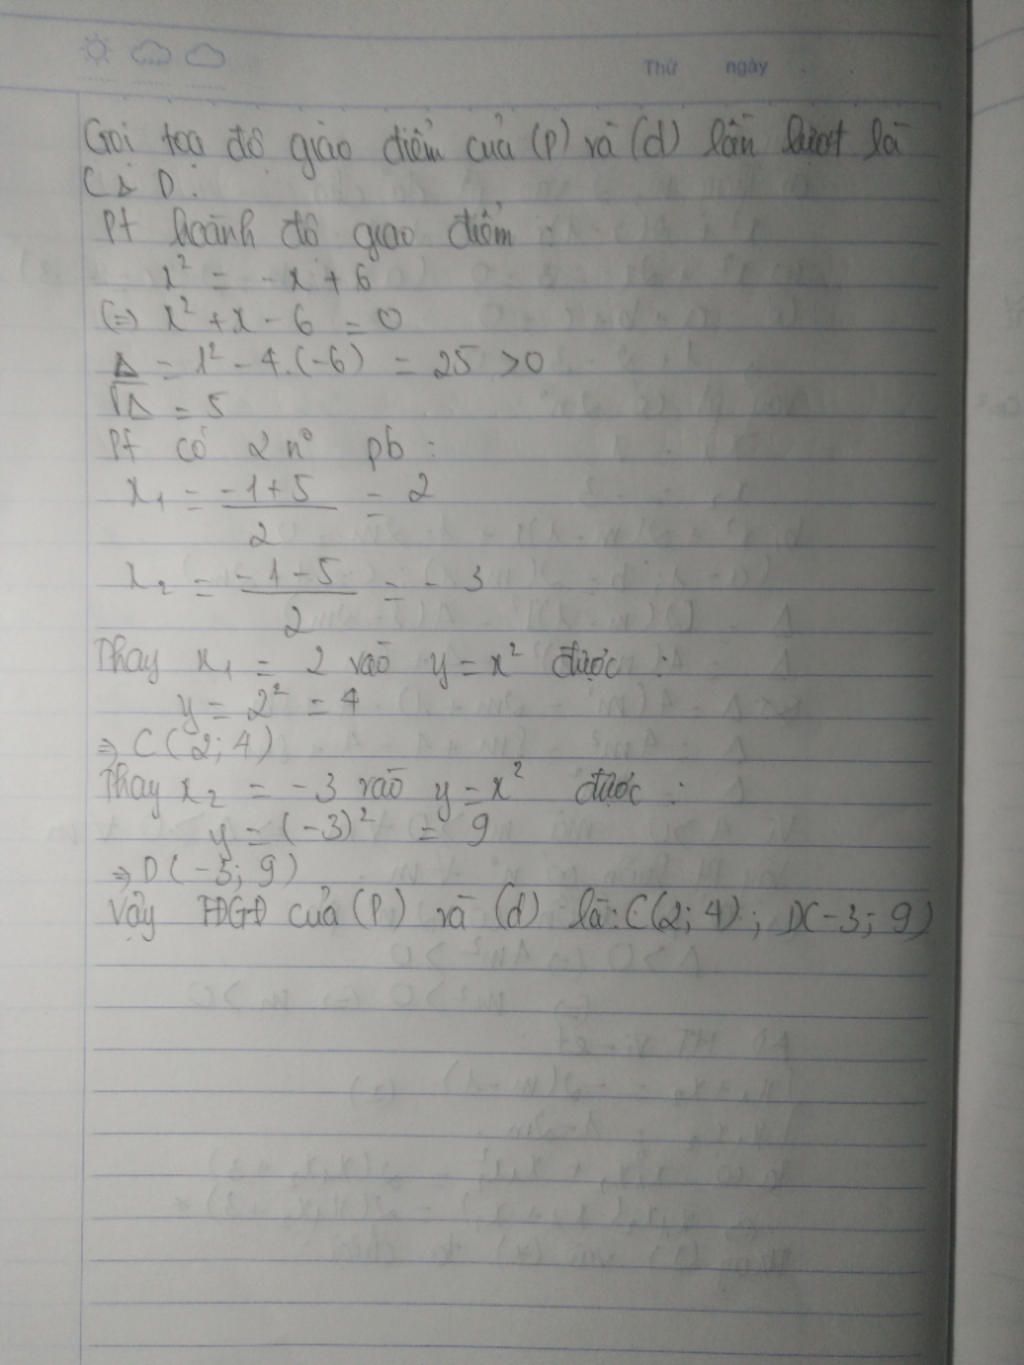 Thứ ngày
Gọi toạ độ giao điểm của (P) và (d) lần lượt là
C & D.
Pt hoành độ giao điểm
x² = -x + 6
(=) x² + x - 6 = 0
Δ = 1² - 4.(-6) = 25 > 0
√Δ = 5
Pt có 2 n° pb :
x₁ = (-1+5)/2 = 2
x₂ = (-1-5)/2 = -3
Thay x₁ = 2 vào y = x² được :
y = 2² = 4
=> C(2; 4)
Thay x₂ = -3 vào y = x² được :
y = (-3)² = 9
=> D(-3; 9)
Vậy TĐGĐ của (P) và (d) là: C(2; 4) ; D(-3; 9)